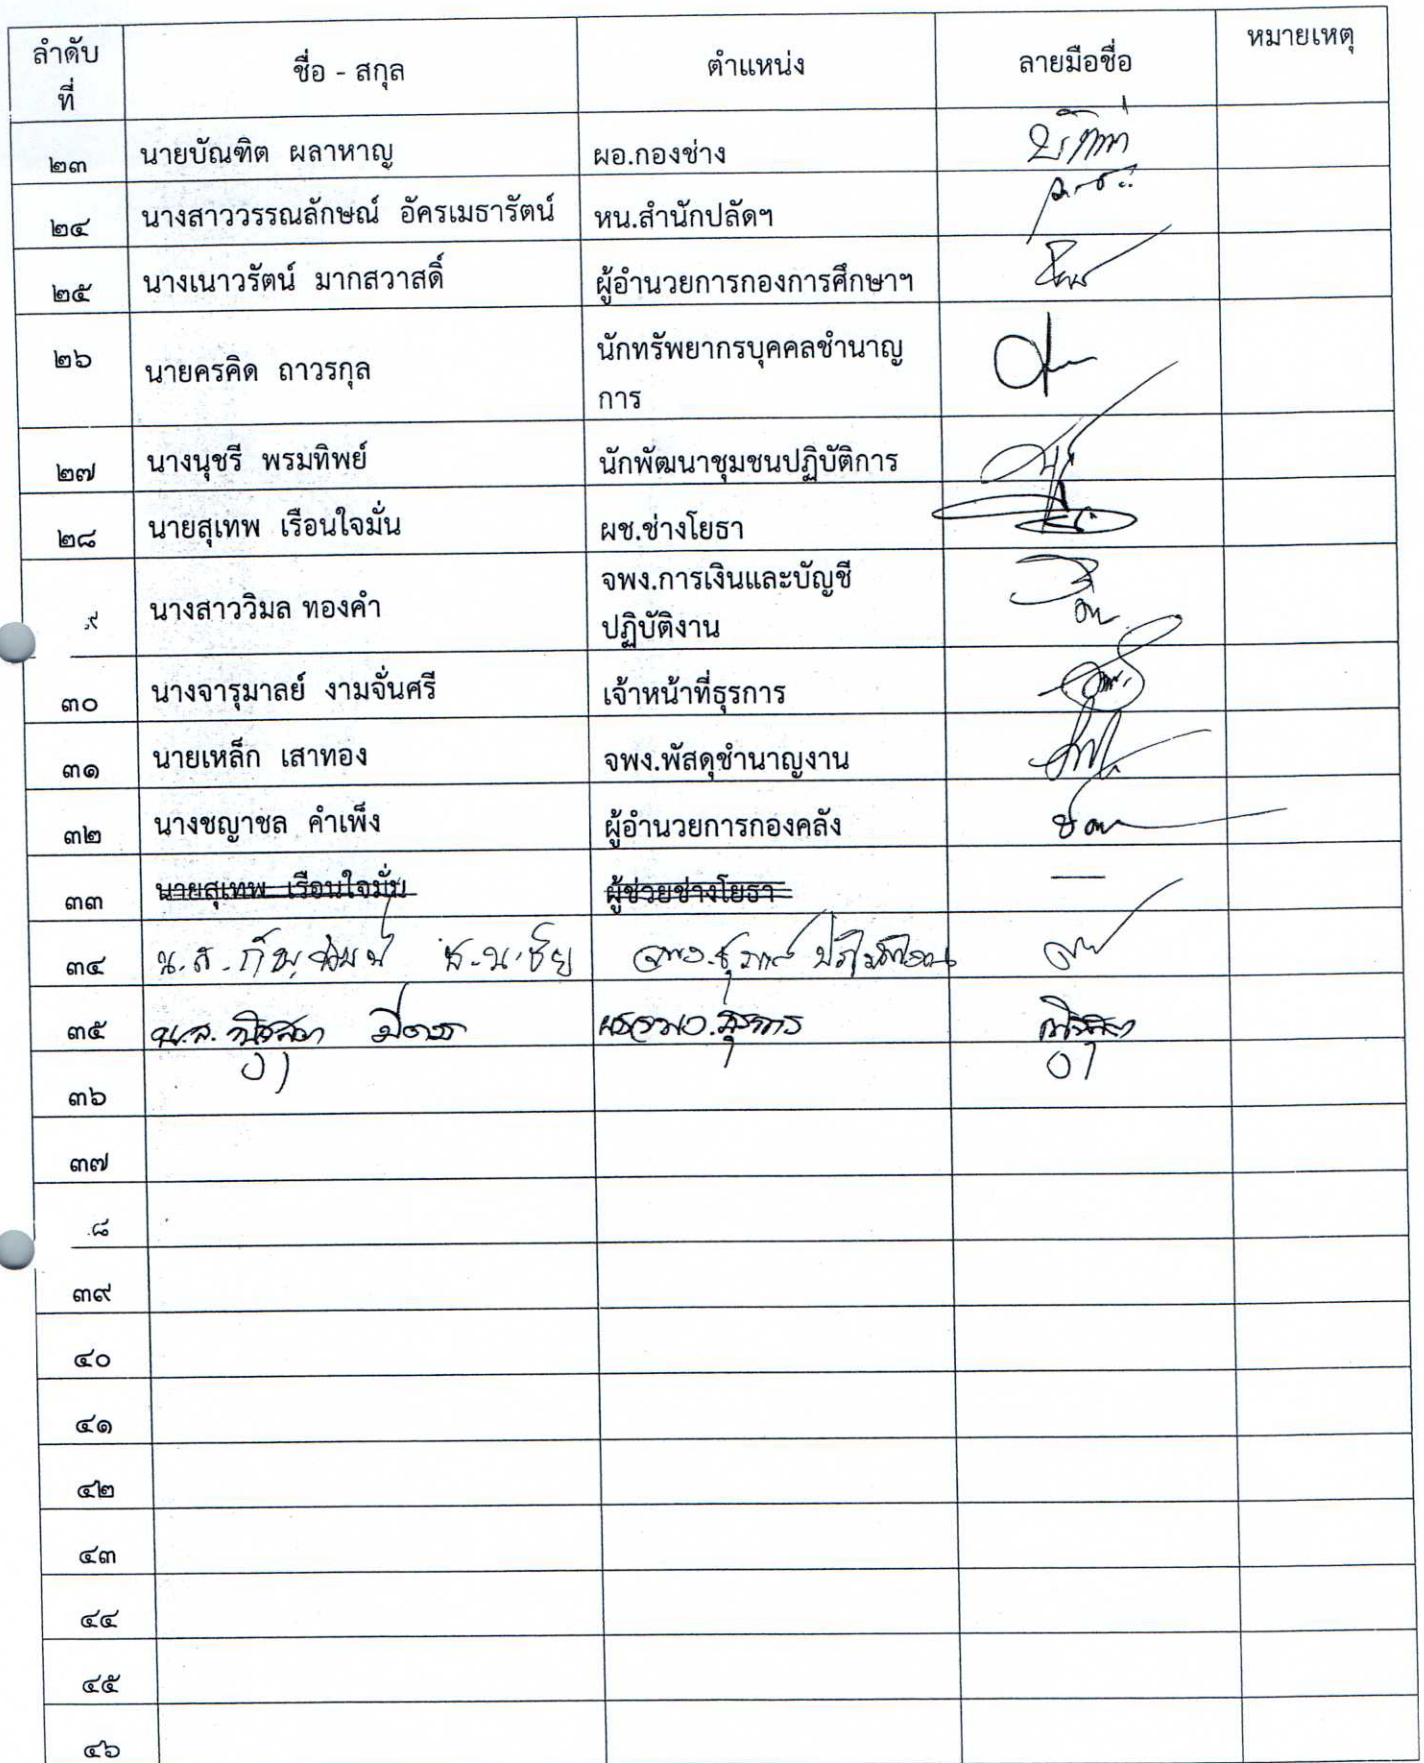 ลำดับ
ที่
ชื่อ - สกุล
ตำแหน่ง
ลายมือชื่อ
หมายเหตุ
๒๓ นายบัณฑิต ผลาหาญ ผอ.กองช่าง
๒๔ นางสาววรรณลักษณ์ อัครเมธารัตน์ หน.สำนักปลัดฯ
๒๕ นางเนาวรัตน์ มากสวาสดิ์ ผู้อำนวยการกองการศึกษาฯ
๒๖ นายครคิด ถาวรกุล นักทรัพยากรบุคคลชำนาญ
การ
๒๗ นางนุชรี พรมทิพย์ นักพัฒนาชุมชนปฏิบัติการ
๒๘ นายสุเทพ เรือนใจมั่น ผช.ช่างโยธา
๙ นางสาววิมล ทองคำ จพง.การเงินและบัญชี
ปฏิบัติงาน
๓๐ นางจารุมาลย์ งามจั่นศรี เจ้าหน้าที่ธุรการ
๓๑ นายเหล็ก เสาทอง จพง.พัสดุชำนาญงาน
๓๒ นางชญาชล คำเพ็ง ผู้อำนวยการกองคลัง
๓๓ นายสุเทพ เรือนใจมั่น ผู้ช่วยช่างโยธา
๓๔ น.ส.
๓๕ น.ส.
๓๖
๓๗
๘
๓๙
๔๐
๔๑
๔๒
๔๓
๔๔
๔๕
๔๖